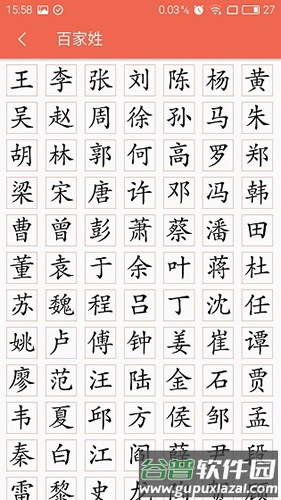 15:58 0.03% 27
百家姓
王 李 张 刘 陈 杨 黄
吴 赵 周 徐 孙 马 朱
胡 林 郭 何 高 罗 郑
梁 宋 唐 许 邓 冯 韩
曹 曾 彭 萧 蔡 潘 田
董 袁 于 余 叶 蒋 杜
苏 魏 程 吕 丁 沈 任
姚 卢 傅 钟 姜 崔 谭
廖 范 汪 陆 金 石 贾
韦 夏 邱 方 侯 邹 孟
秦 白 江 阎 薛 尹 段
雷 黎 史
谷普软件园
www.gupuxiazai.com